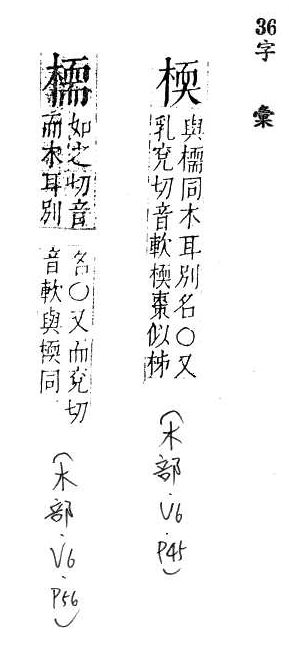 36字彙
㮕
與檽同木耳別名○又
乳兗切音軟㮕棗似柹
(木部.V6.P45)
檽
如之切音
而木耳別
名○又而兗切
音軟與㮕同
(木部.V6.P56)